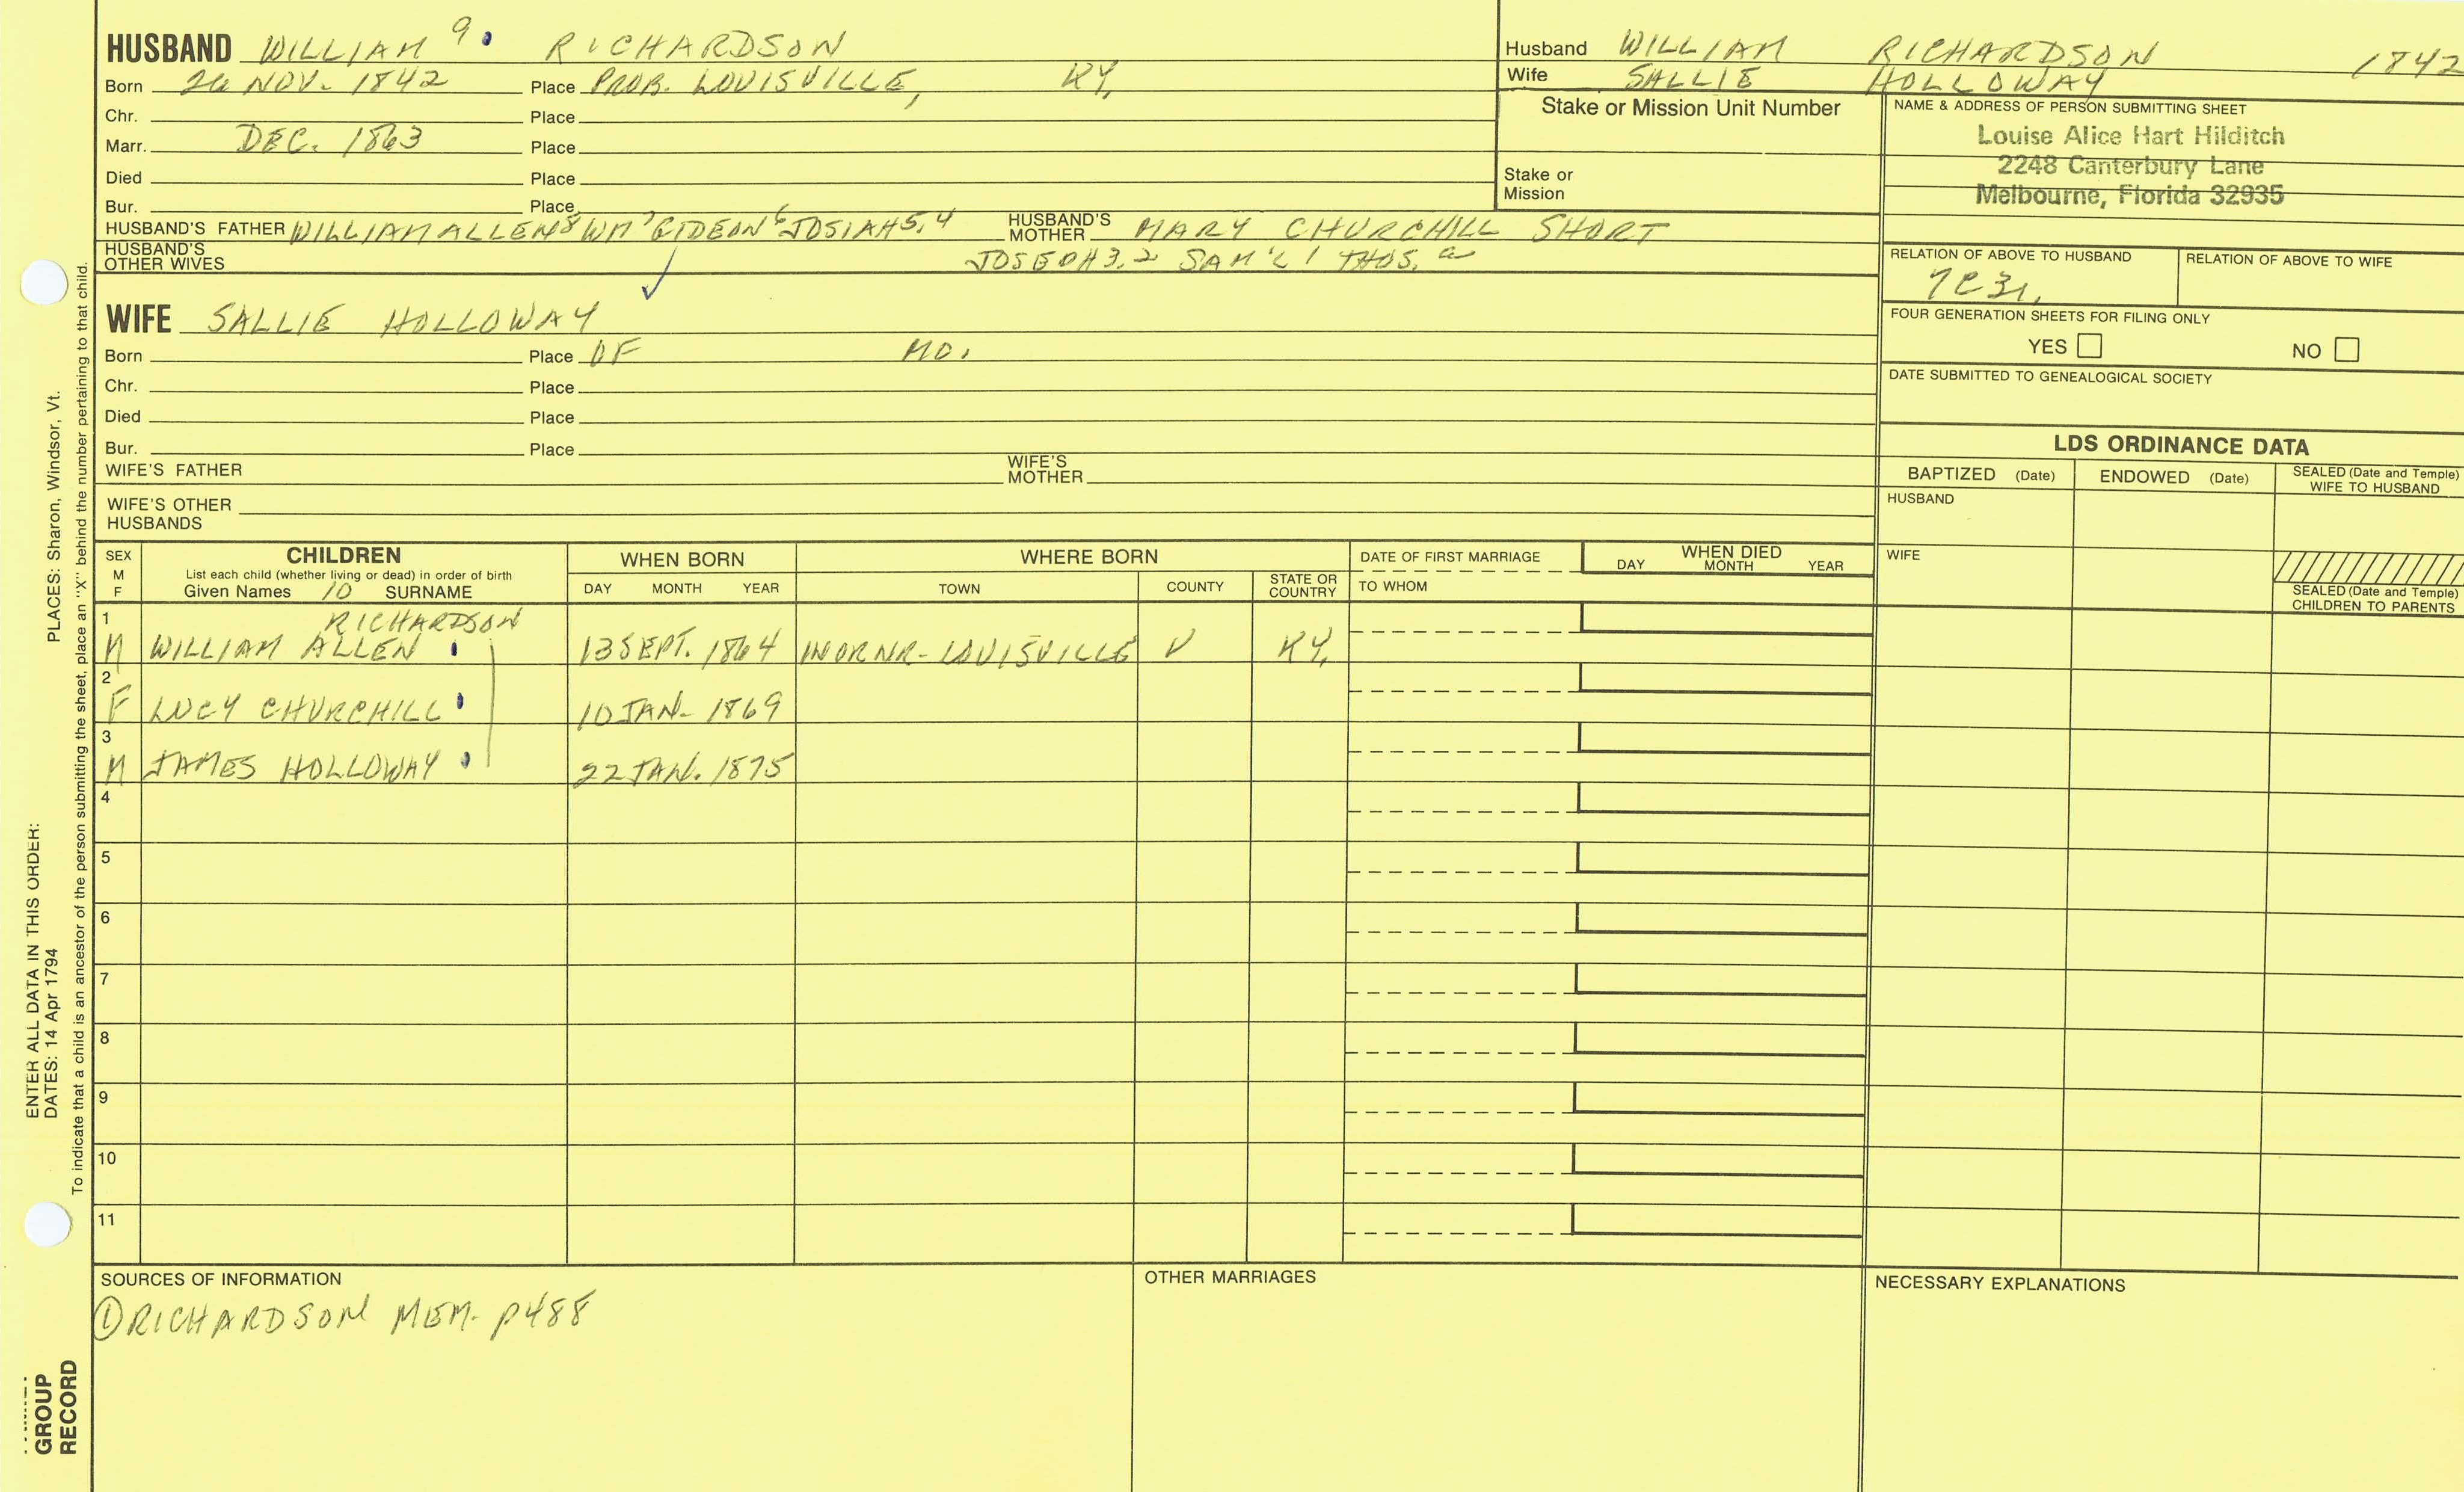 HUSBAND WILLIAM 9 RICHARDSON
Born 26 NOV. 1842 Place PROB. LOUISVILLE, KY.
Chr. Place
Marr. DEC. 1863 Place
Died Place
Bur. Place
HUSBAND'S FATHER WILLIAM ALLEN 8 WM 7 GIDEON 6 JOSIAH 5,4 HUSBAND'S MOTHER MARY CHURCHILL SHORT
HUSBAND'S OTHER WIVES JOSEPH 3,2 SAM'L 1 THOS. a
WIFE SALLIE HOLLOWAY
Born Place OF MO.
Chr. Place
Died Place
Bur. Place
WIFE'S FATHER WIFE'S MOTHER
WIFE'S OTHER HUSBANDS
Husband WILLIAM RICHARDSON 1842
Wife SALLIE HOLLOWAY
Stake or Mission Unit Number
Stake or Mission
NAME & ADDRESS OF PERSON SUBMITTING SHEET
Louise Alice Hart Hilditch
2248 Canterbury Lane
Melbourne, Florida 32935
RELATION OF ABOVE TO HUSBAND RELATION OF ABOVE TO WIFE
7C3r.
FOUR GENERATION SHEETS FOR FILING ONLY
YES NO
DATE SUBMITTED TO GENEALOGICAL SOCIETY
LDS ORDINANCE DATA
BAPTIZED (Date) ENDOWED (Date) SEALED (Date and Temple) WIFE TO HUSBAND
HUSBAND
WIFE
SEALED (Date and Temple) CHILDREN TO PARENTS
SEX M F CHILDREN WHEN BORN WHERE BORN DATE OF FIRST MARRIAGE WHEN DIED
List each child (whether living or dead) in order of birth
Given Names 10 SURNAME DAY MONTH YEAR TOWN COUNTY STATE OR COUNTRY TO WHOM DAY MONTH YEAR
1 RICHARDSON
M WILLIAM ALLEN 13 SEPT. 1864 IN OR NR. LOUISVILLE KY.
2
F LUCY CHURCHILL 10 JAN. 1869
3
M JAMES HOLLOWAY 22 JAN. 1875
4
5
6
7
8
9
10
11
SOURCES OF INFORMATION OTHER MARRIAGES NECESSARY EXPLANATIONS
① RICHARDSON MEM. P488
ENTER ALL DATA IN THIS ORDER:
DATES: 14 Apr 1794 PLACES: Sharon, Windsor, Vt.
To indicate that a child is an ancestor of the person submitting the sheet, place an "X" behind the number pertaining to that child.
GROUP
RECORD